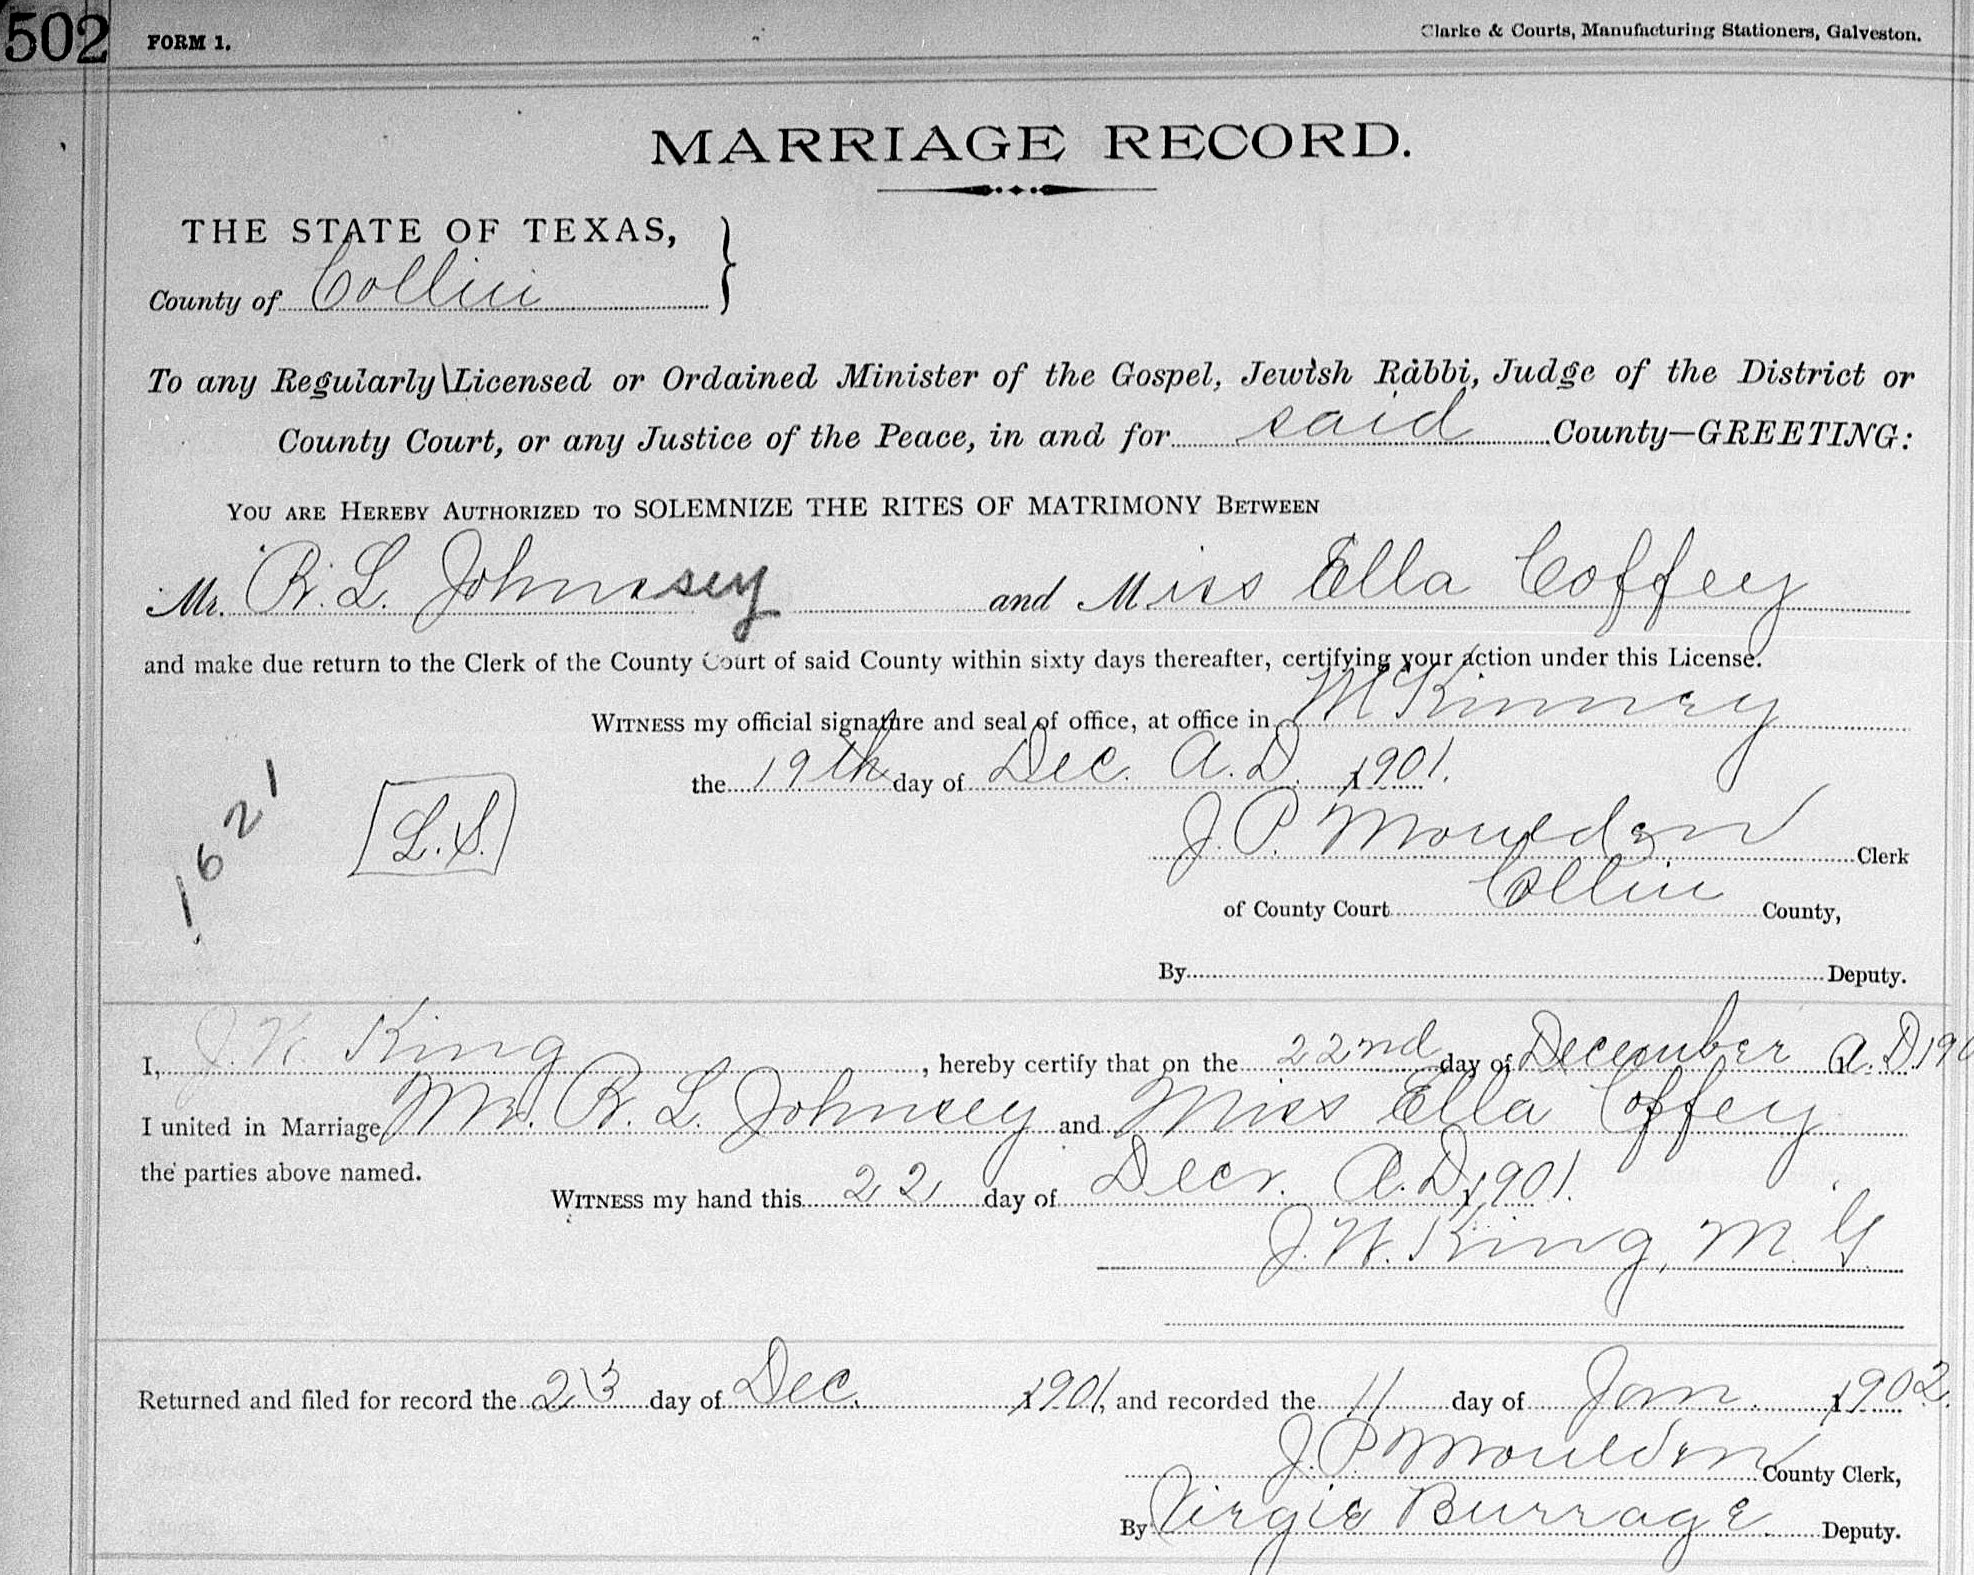 502 FORM 1. Clarke & Courts, Manufacturing Stationers, Galveston.
MARRIAGE RECORD.
THE STATE OF TEXAS,
County of Collin
To any Regularly Licensed or Ordained Minister of the Gospel, Jewish Rabbi, Judge of the District or
County Court, or any Justice of the Peace, in and for said County—GREETING:
YOU ARE HEREBY AUTHORIZED TO SOLEMNIZE THE RITES OF MATRIMONY BETWEEN
Mr. R. L. Johnsey and Miss Ella Coffey
and make due return to the Clerk of the County Court of said County within sixty days thereafter, certifying your action under this License.
WITNESS my official signature and seal of office, at office in McKinney
the 19th day of Dec. A.D. 1901.
1621
L.S.
J. P. Moulden Clerk
of County Court Collin County,
By Deputy.
I, J. W. King, hereby certify that on the 22nd day of December A.D. 190
I united in Marriage Mr. R. L. Johnsey and Miss Ella Coffey
the parties above named.
WITNESS my hand this 22 day of Decr. A.D. 1901.
J. W. King, M. G.
Returned and filed for record the 23 day of Dec. 1901, and recorded the 11 day of Jan. 1902.
J. P. Moulden County Clerk,
By Virgie Burrage Deputy.